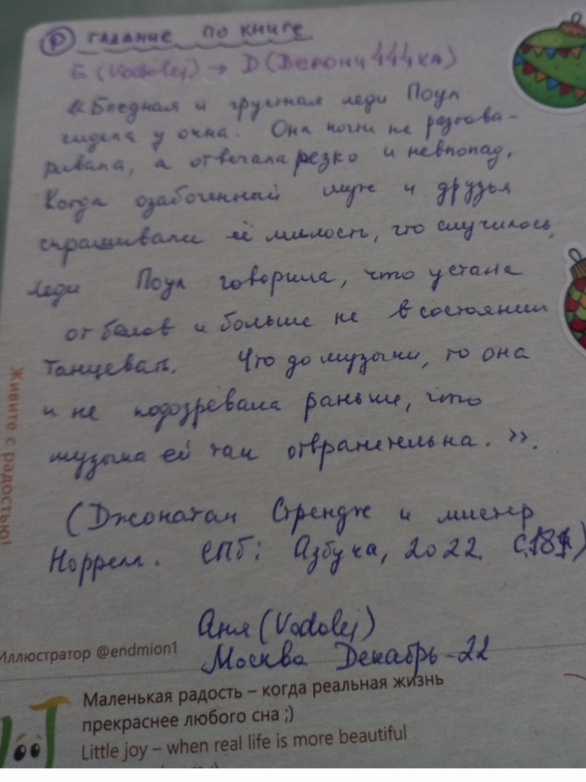 Ⓟ ГАДАНИЕ ПО КНИГЕ
E (Vodolej) → D (ВЕРОНИ444КА)
"Бледная и грустная леди Поул
сидела у окна. Она почти не разгова-
ривала, а отвечала резко и невпопад.
Когда озабоченный муж и друзья
спрашивали её милость, что случилось,
леди Поул говорила, что устала
от балов и больше не в состоянии
танцевать. Что до музыки, то она
и не подозревала раньше, что
музыка ей так отвратительна.".
(Джонатан Стрендж и мистер
Норрелл. СПб: Азбука, 2022. С.181)
Аня (Vodolej)
Москва Декабрь-22
Живите с радостью!
Иллюстратор @endmion1
Маленькая радость – когда реальная жизнь
прекраснее любого сна ;)
Little joy – when real life is more beautiful